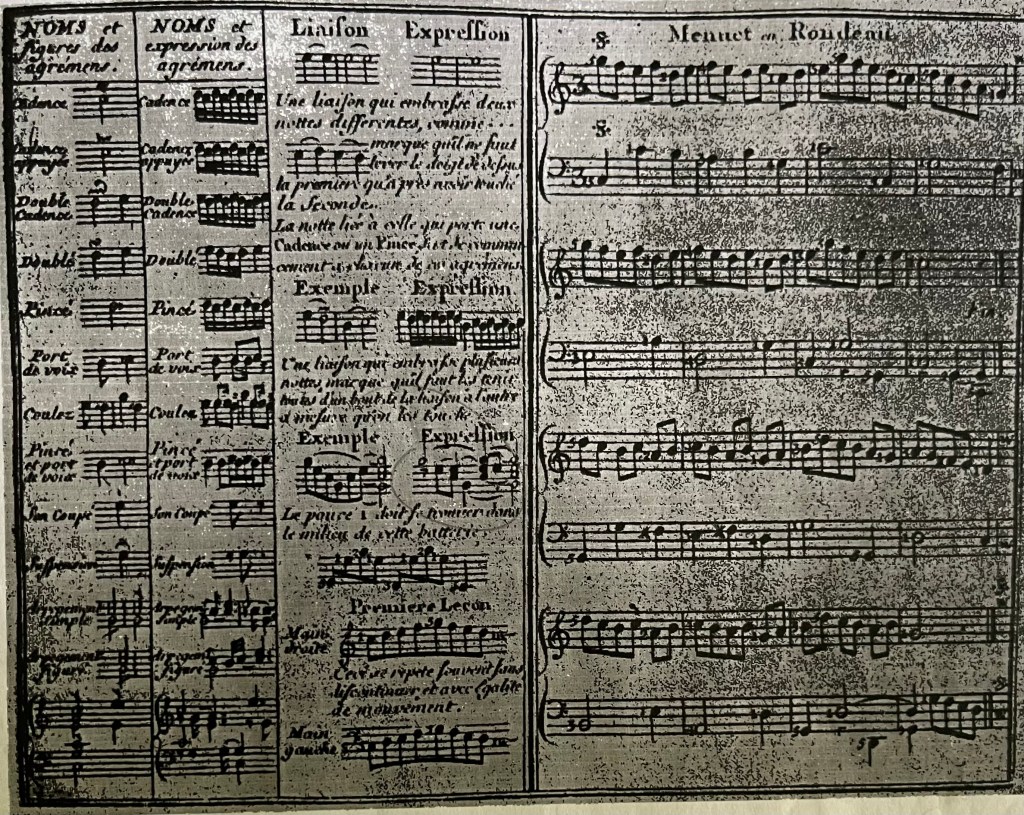 NOMS et
figures des
agrémens.
Cadence
Cadence
appuyée
Double
Cadence
Doublé
Pincé
Port
de voix
Coulez
Pincé
et port
de voix
Son Coupé
Suspension
Arpegement
simple
Arpegement
figuré
NOMS et
expression des
agrémens.
Cadence
Cadence
appuyée
Double
Cadence
Doublé
Pincé
Port
de voix
Coulez
Pincé
et port
de voix
Son Coupé
Suspension
Arpegem
simple
Arpegem
figuré
Liaison Expression
Une liaison qui embrasse deux
nottes differentes, comme...
marque qu'il ne faut
lever le doigt de dessus
la premiere qu'après avoir touché
la seconde.
La notte liée à celle qui porte une
Cadence ou un Pincé
cement a chacun de ces agrémens.
Exemple Expression
Une liaison qui embrasse plusieurs
nottes marque qu'il faut les tenir
toutes d'un bout de la liaison à l'autre
à mesure qu'on les touche
Exemple Expression
Le pouce 1 doit se trouver dans
le milieu de cette batterie.
Premiere Leçon
Main
droite
Ceci se répete souvent sans
discontinuer et avec égalité
de mouvement.
Main
gauche
Menuet en Rondeau
Fin